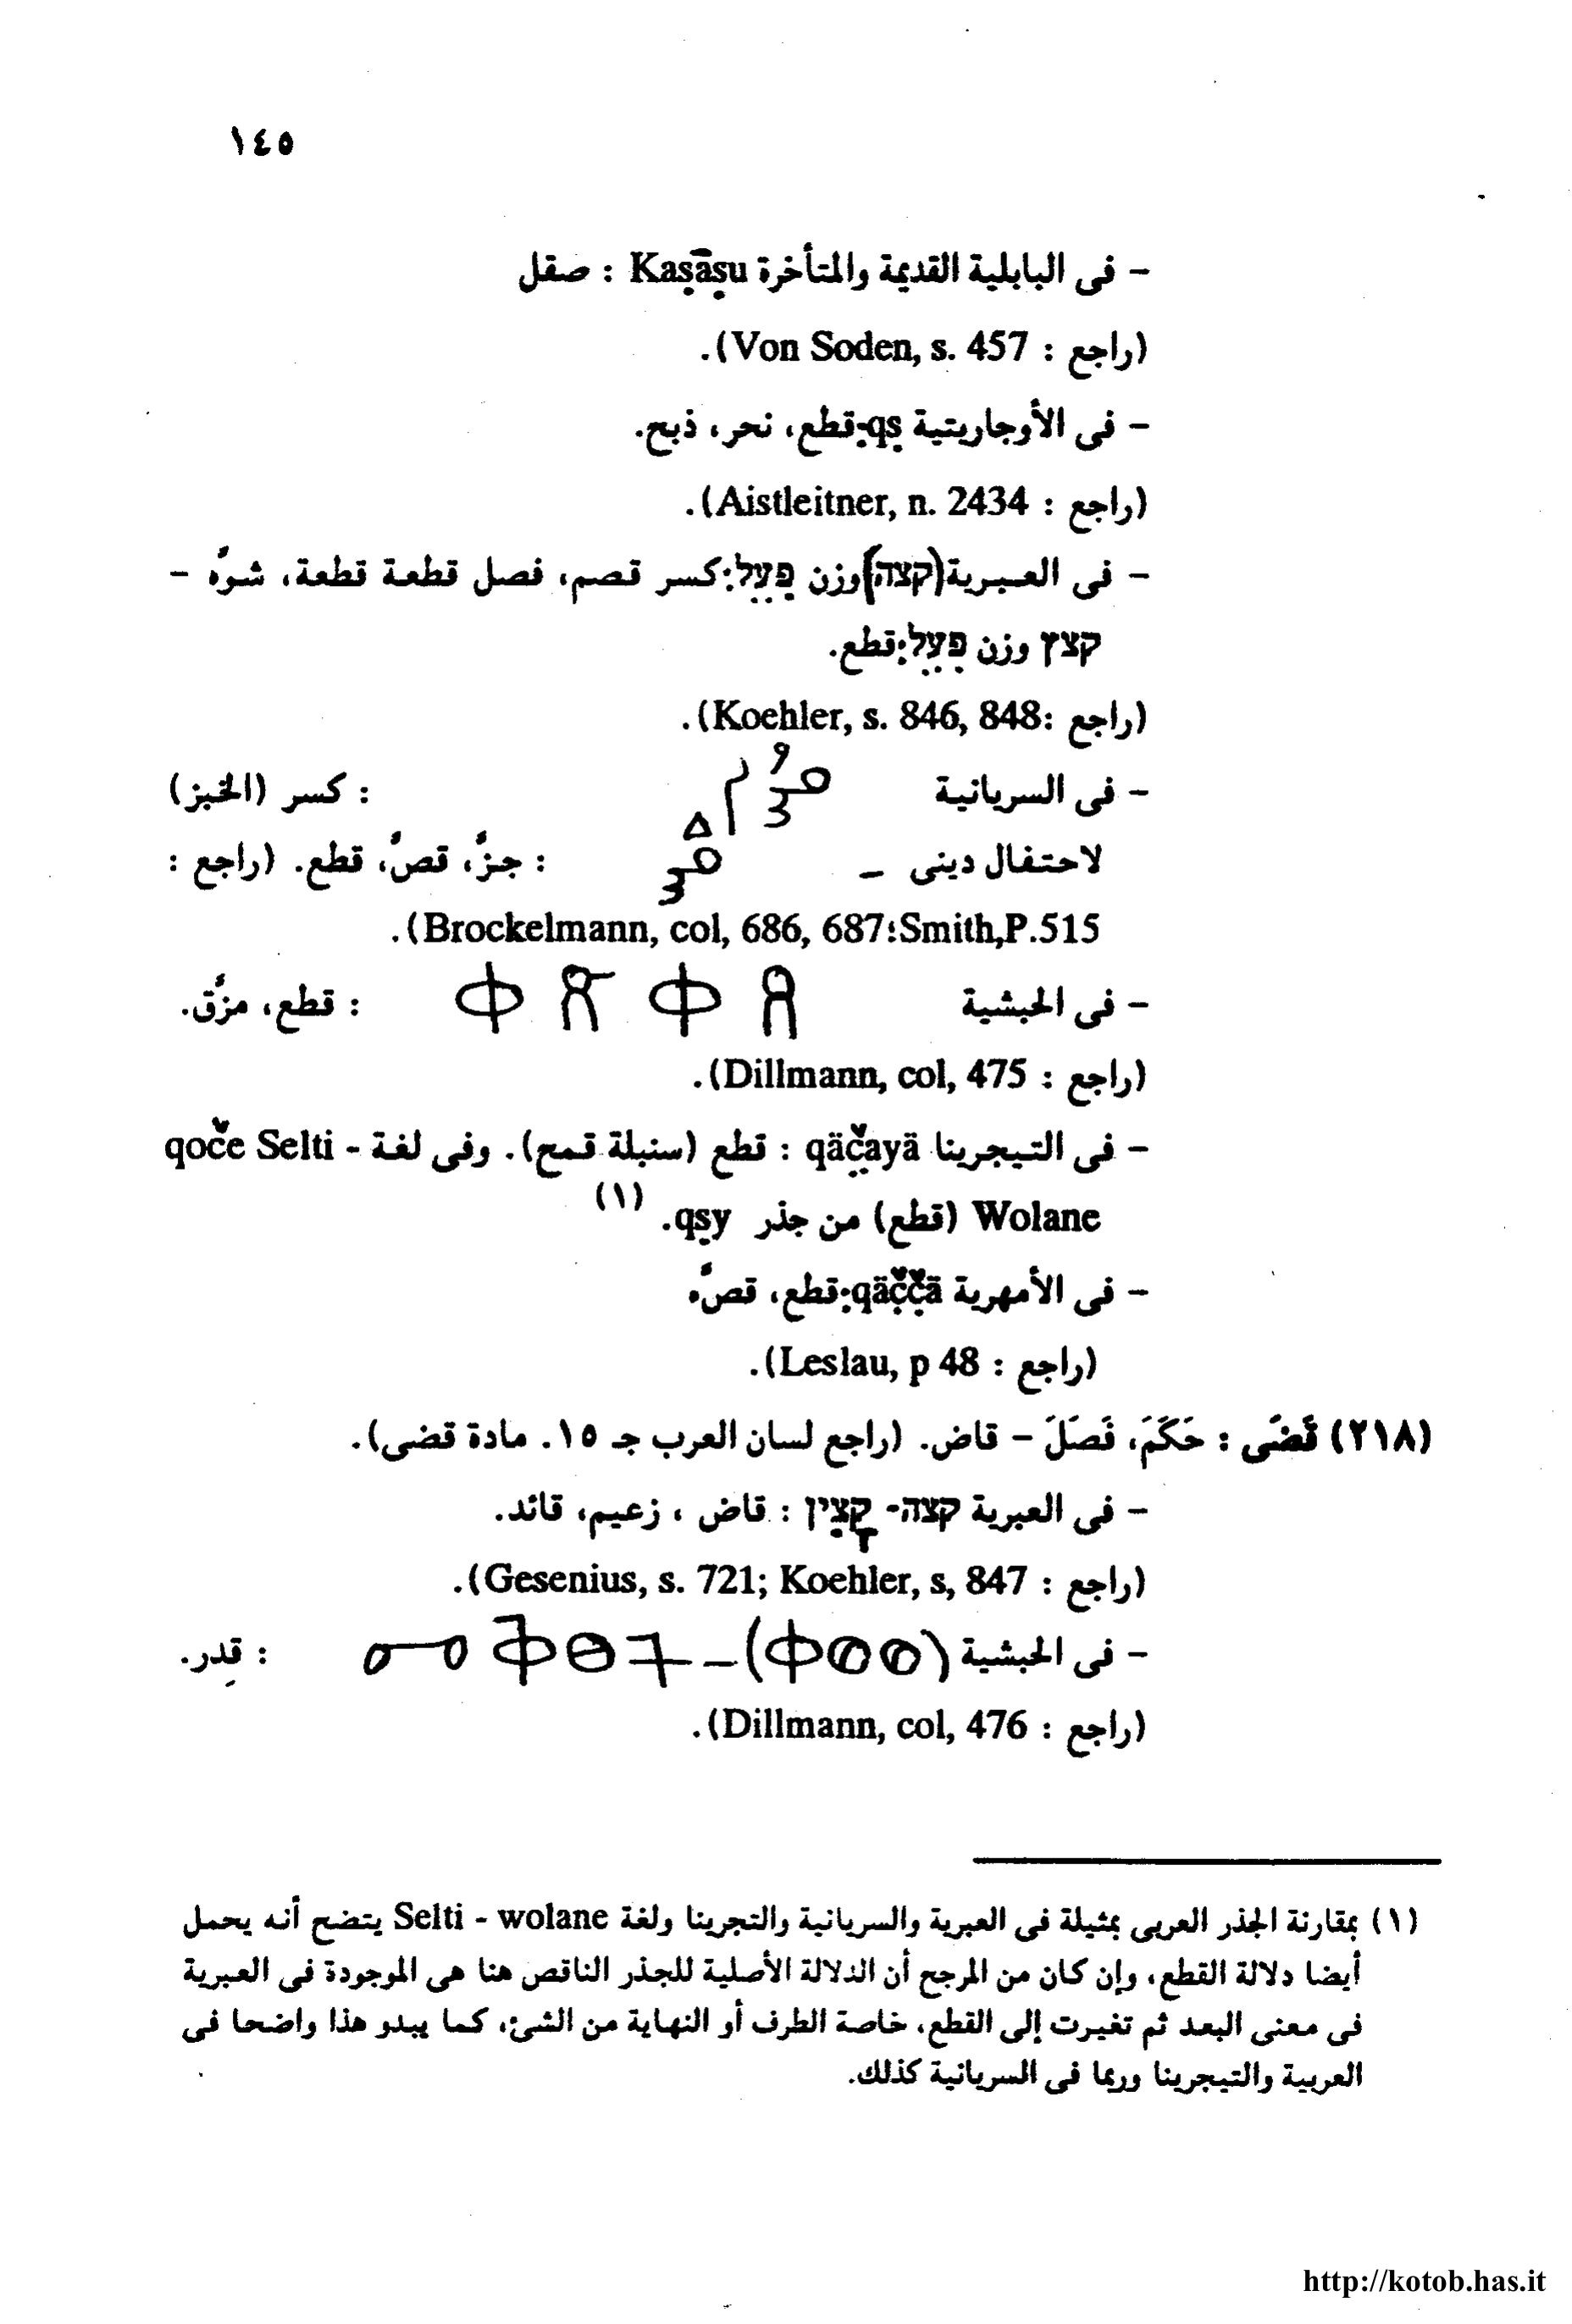 ١٤٥
- فى البابلية القديمة والمتأخرة Kaṣāṣu : صقل
(راجع : Von Soden, s. 457).
- فى الأوجاريتية qṣ:قطع، نحر، ذبح.
(راجع : Aistleitner, n. 2434).
- فى العبرية (קצה) وزن פִּעֵל:كسر قصم، فصل قطعة قطعة، شوّه -
קצץ وزن פִּעֵל:قطع.
(راجع :Koehler, s. 846, 848).
- فى السريانية : كسر (الخبز)
لاحتفال دينى - ܩܨ : جزُّ، قصُّ، قطع. (راجع :
Brockelmann, col, 686, 687؛Smith,P.515).
- فى الحبشية : قطع، مزّق.
(راجع : Dillmann, col, 475).
- فى التيجرينا qäč̣ayä : قطع (سنبلة قمح). وفى لغة qoče Selti -
Wolane (قطع) من جذر qṣy. (١)
- فى الأمهرية qäč̣č̣ä:قطع، قصّه
(راجع : Leslau, p 48).
(٢١٨) قَضَى : حَكَمَ، فَصَلَ - قاض. (راجع لسان العرب جـ ١٥. مادة قضى).
- فى العبرية קצה- קָצִין : قاض ، زعيم، قائد.
(راجع : Gesenius, s. 721; Koehler, s, 847).
- فى الحبشية : قدر.
(راجع : Dillmann, col, 476).
(١) بمقارنة الجذر العربى بمثيلة فى العبرية والسريانية والتجرينا ولغة Selti - wolane يتضح أنه يحمل
أيضا دلالة القطع، وإن كان من المرجح أن الدلالة الأصلية للجذر الناقص هنا هى الموجودة فى العبرية
فى معنى البعد ثم تغيرت إلى القطع، خاصة الطرف أو النهاية من الشئ، كما يبدو هذا واضحا فى
العربية والتيجرينا وربما فى السريانية كذلك.
http://kotob.has.it